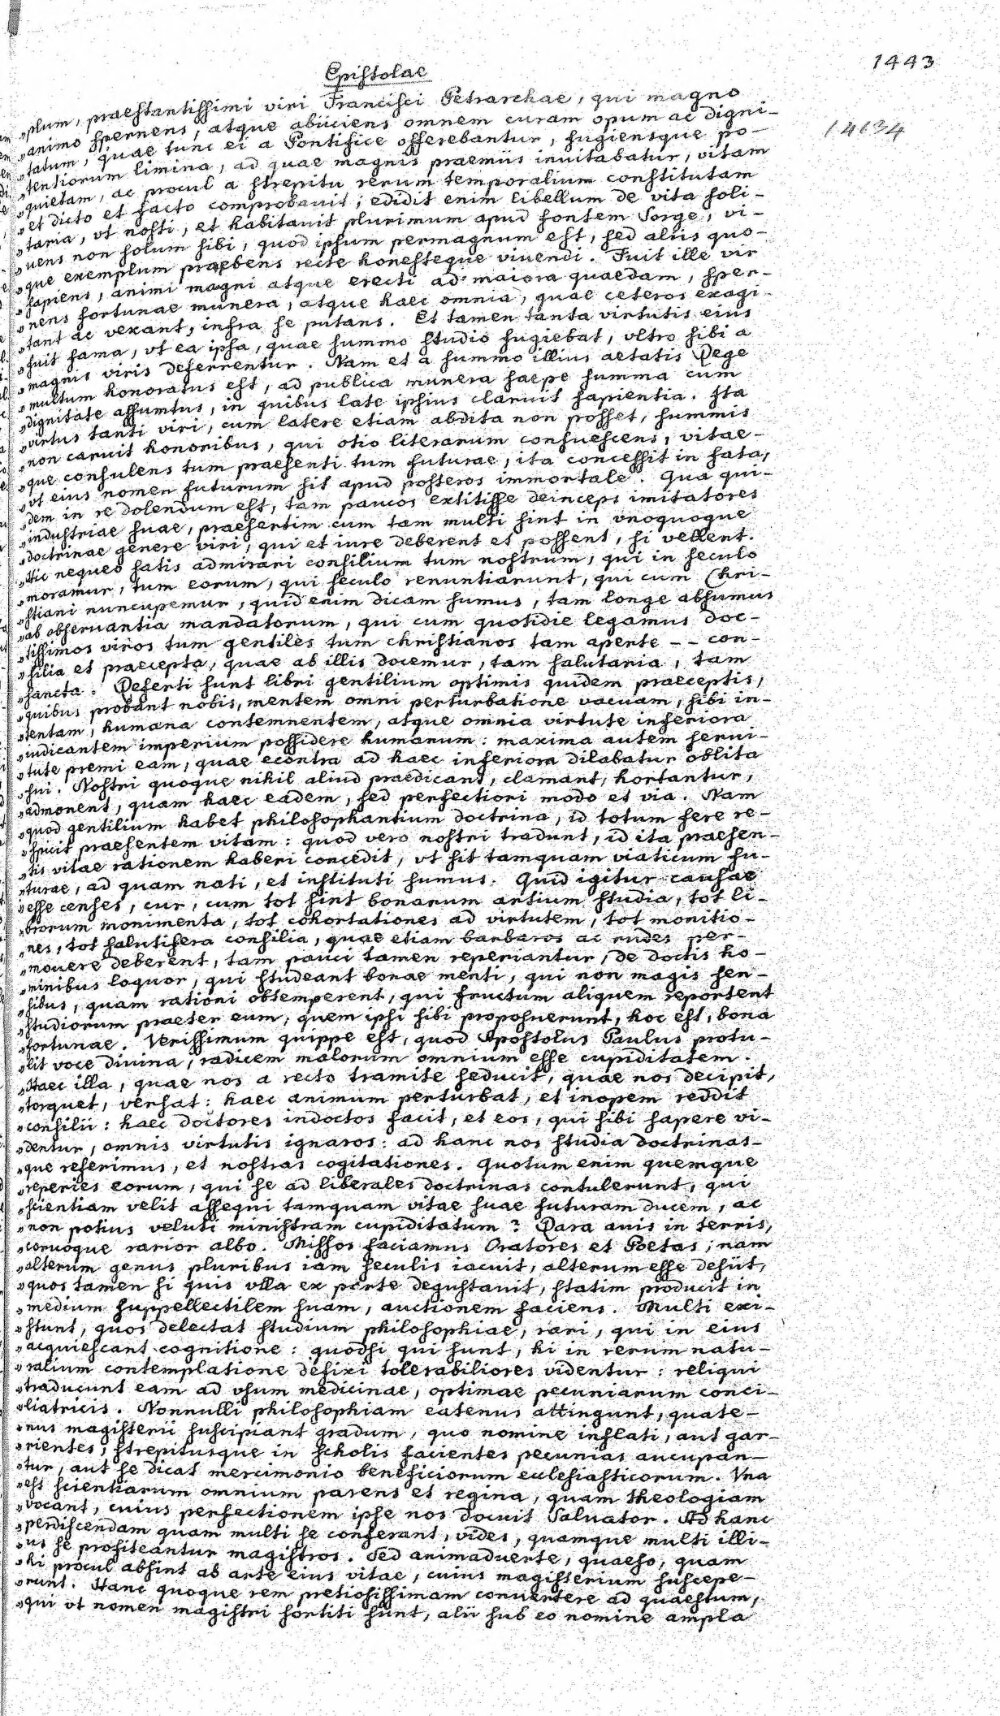 1443
Epistolae
14134
„plum, praestantissimi viri Francisci Petrarchae, qui magno
„animo spernens, atque abiiciens omnem curam opum ac digni-
„tatum, quae tunc ei a Pontifice offerebantur, fugiensque po-
„tentiorum limina, ad quae magnis praemiis inuitabatur, vitam
„quietam, ac procul a strepitu rerum temporalium constitutam
„et dicto et facto comprobauit; edidit enim libellum de vita soli-
„taria, vt nosti, et habitauit plurimum apud fontem Sorge, vi-
„uens non solum sibi, quod ipsum permagnum est, sed aliis quo-
„que exemplum praebens recte honesteque viuendi. Fuit ille vir
„sapiens, animi magni atque erecti ad maiora quaedam, sper-
„nens fortunae munera, atque haec omnia, quae ceteros exagi-
„tant ac vexant, infra se putans. Et tamen tanta virtutis eius
„fuit fama, vt ea ipsa, quae summo studio fugiebat, vltro sibi a
„magnis viris deferrentur. Nam et a summo illius aetatis Rege
„multum honoratus est, ad publica munera saepe summa cum
„dignitate assumtus, in quibus late ipsius claruit sapientia. Ita
„virtus tanti viri, cum latere etiam abdita non posset, summis
„non caruit honoribus, qui otio literarum consuescens, vitae-
„que consulens tum praesenti tum futurae, ita concessit in fata,
„vt eius nomen futurum sit apud posteros immortale. Qua qui-
„dem in re dolendum est, tam paucos extitisse deinceps imitatores
„industriae suae, praesertim cum tam multi sint in vnoquoque
„doctrinae genere viri, qui et iure deberent et possent, si vellent.
„Hic nequeo satis admirari consilium tum nostrum, qui in seculo
„moramur, tum eorum, qui seculo renuntiarunt, qui cum Chri-
„stiani nuncupemur, quid enim dicam sumus, tam longe absumus
„ab obseruantia mandatorum, qui cum quotidie legamus doc-
„tissimos viros tum gentiles tum christianos tam aperte -- con-
„silia et praecepta, quae ab illis docemur, tam salutaria, tam
„sancta. Referti sunt libri gentilium optimis quidem praeceptis,
„quibus probant nobis, mentem omni perturbatione vacuam, sibi in-
„tentam, humana contemnentem, atque omnia virtute inferiora
„iudicantem imperium possidere humanum: maxima autem serui-
„tute premi eam, quae econtra ad haec inferiora dilabatur oblita
„sui. Nostri quoque nihil aliud praedicant, clamant, hortantur,
„admonent, quam haec eadem, sed perfectiori modo et via. Nam
„quod gentilium habet philosophantium doctrina, id totum fere re-
„spicit praesentem vitam: quod vero nostri tradunt, id ita praesen-
„tis vitae rationem haberi concedit, vt sit tamquam viaticum fu-
„turae, ad quam nati, et instituti sumus. Quid igitur causae
„esse censes, cur, cum tot sint bonarum artium studia, tot li-
„brorum monimenta, tot cohortationes ad virtutem, tot monitio-
„nes, tot salutifera consilia, quae etiam barbaros ac rudes per-
„mouere deberent, tam pauci tamen reperiantur, de doctis ho-
„minibus loquor, qui studeant bonae menti, qui non magis sen-
„sibus, quam rationi obtemperent, qui fructum aliquem reportent
„studiorum praeter eum, quem ipsi sibi proposuerunt, hoc est, bona
„fortunae. Verissimum quippe est, quod Apostolus Paulus protu-
„lit voce divina, radicem malorum omnium esse cupiditatem.
„Haec illa, quae nos a recto tramite seducit, quae nos decipit,
„torquet, versat: haec animum perturbat, et inopem reddit
„consilii: haec doctores indoctos facit, et eos, qui sibi sapere vi-
„dentur, omnis virtutis ignaros: ad hanc nos studia doctrinas-
„que referimus, et nostras cogitationes. Quotum enim quemque
„reperies eorum, qui se ad liberales doctrinas contulerunt, qui
„scientiam velit assequi tamquam vitae suae futuram ducem, ac
„non potius veluti ministram cupiditatum? Rara auis in terris,
„coruoque rarior albo. Missos faciamus Oratores et Poetas; nam
„alterum genus pluribus iam seculis iacuit, alterum esse desiit,
„quos tamen si quis vlla ex parte degustauit, statim producit in
„medium suppellectilem suam, auctionem faciens. Multi exi-
„stunt, quos delectat studium philosophiae, rari, qui in eius
„acquiescant cognitione: quodsi qui sunt, hi in rerum natu-
„ralium contemplatione defixi tolerabiliores videntur: reliqui
„traducunt eam ad vsum medicinae, optimae pecuniarum conci-
„liatricis. Nonnulli philosophiam eatenus attingunt, quate-
„nus magisterii suscipiant gradum, quo nomine inflati, aut gar-
„rientes, strepitusque in scholis facientes pecunias aucupan-
„tur, aut se dicat mercimonio beneficiorum ecclesiasticorum. Vna
„est scientiarum omnium parens et regina, quam theologiam
„vocant, cuius perfectionem ipse nos docuit Saluator. Ad hanc
„perdiscendam quam multi se conferant, vides, quamque multi illi-
„us se profiteantur magistros. Sed animaduerte, quaeso, quam
„hi procul absint ab arte eius vitae, cuius magisterium suscepe-
„runt. Hanc quoque rem pretiosissimam conuertere ad quaestum,
„qui vt nomen magistri sortiti sunt, alii sub eo nomine ampla